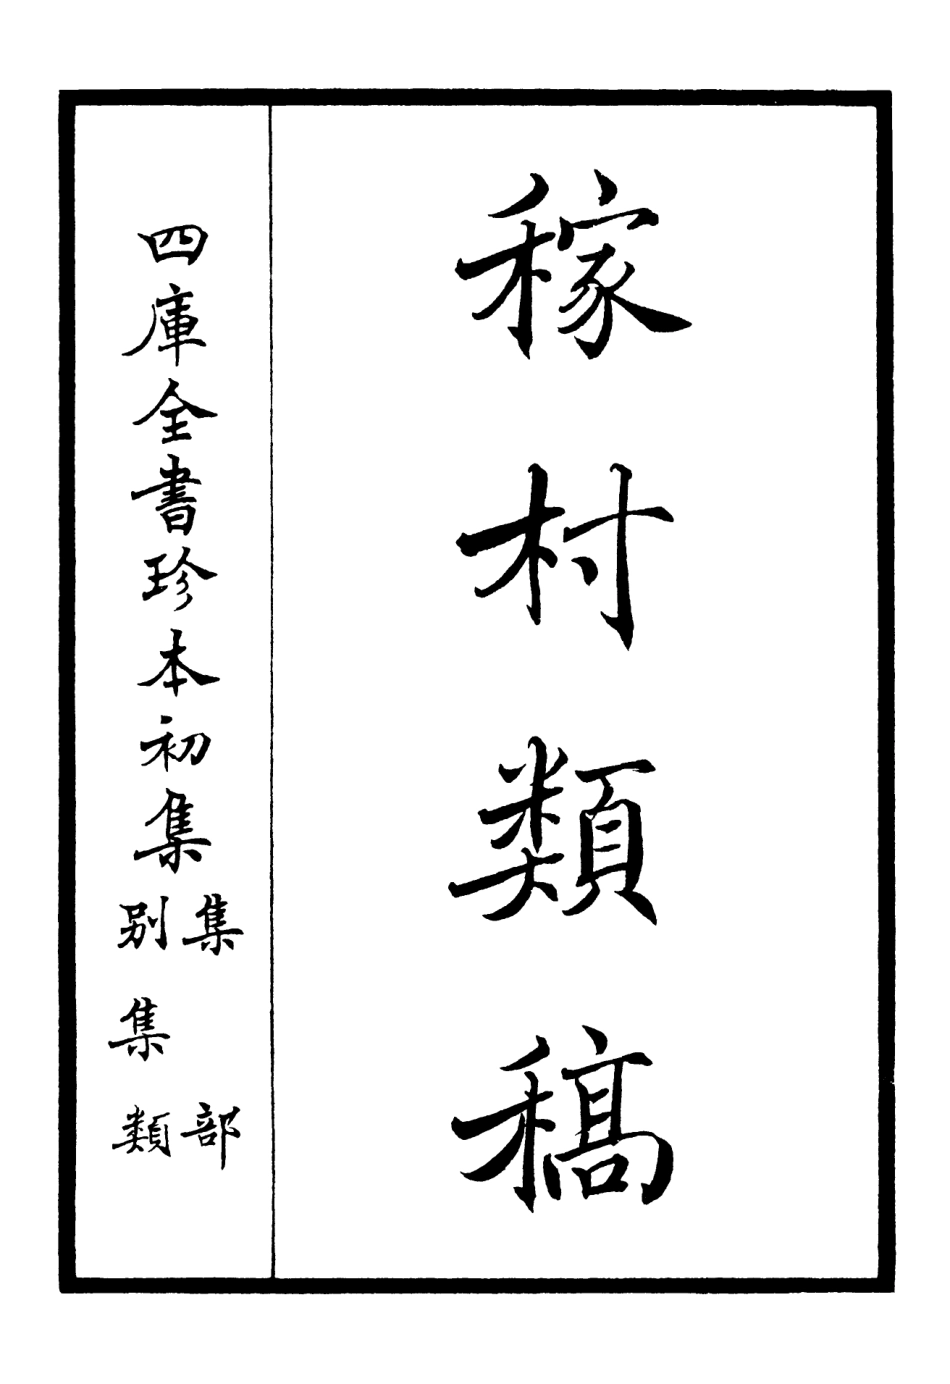 稼村類稿
四庫全書珍本初集
集部
別集類